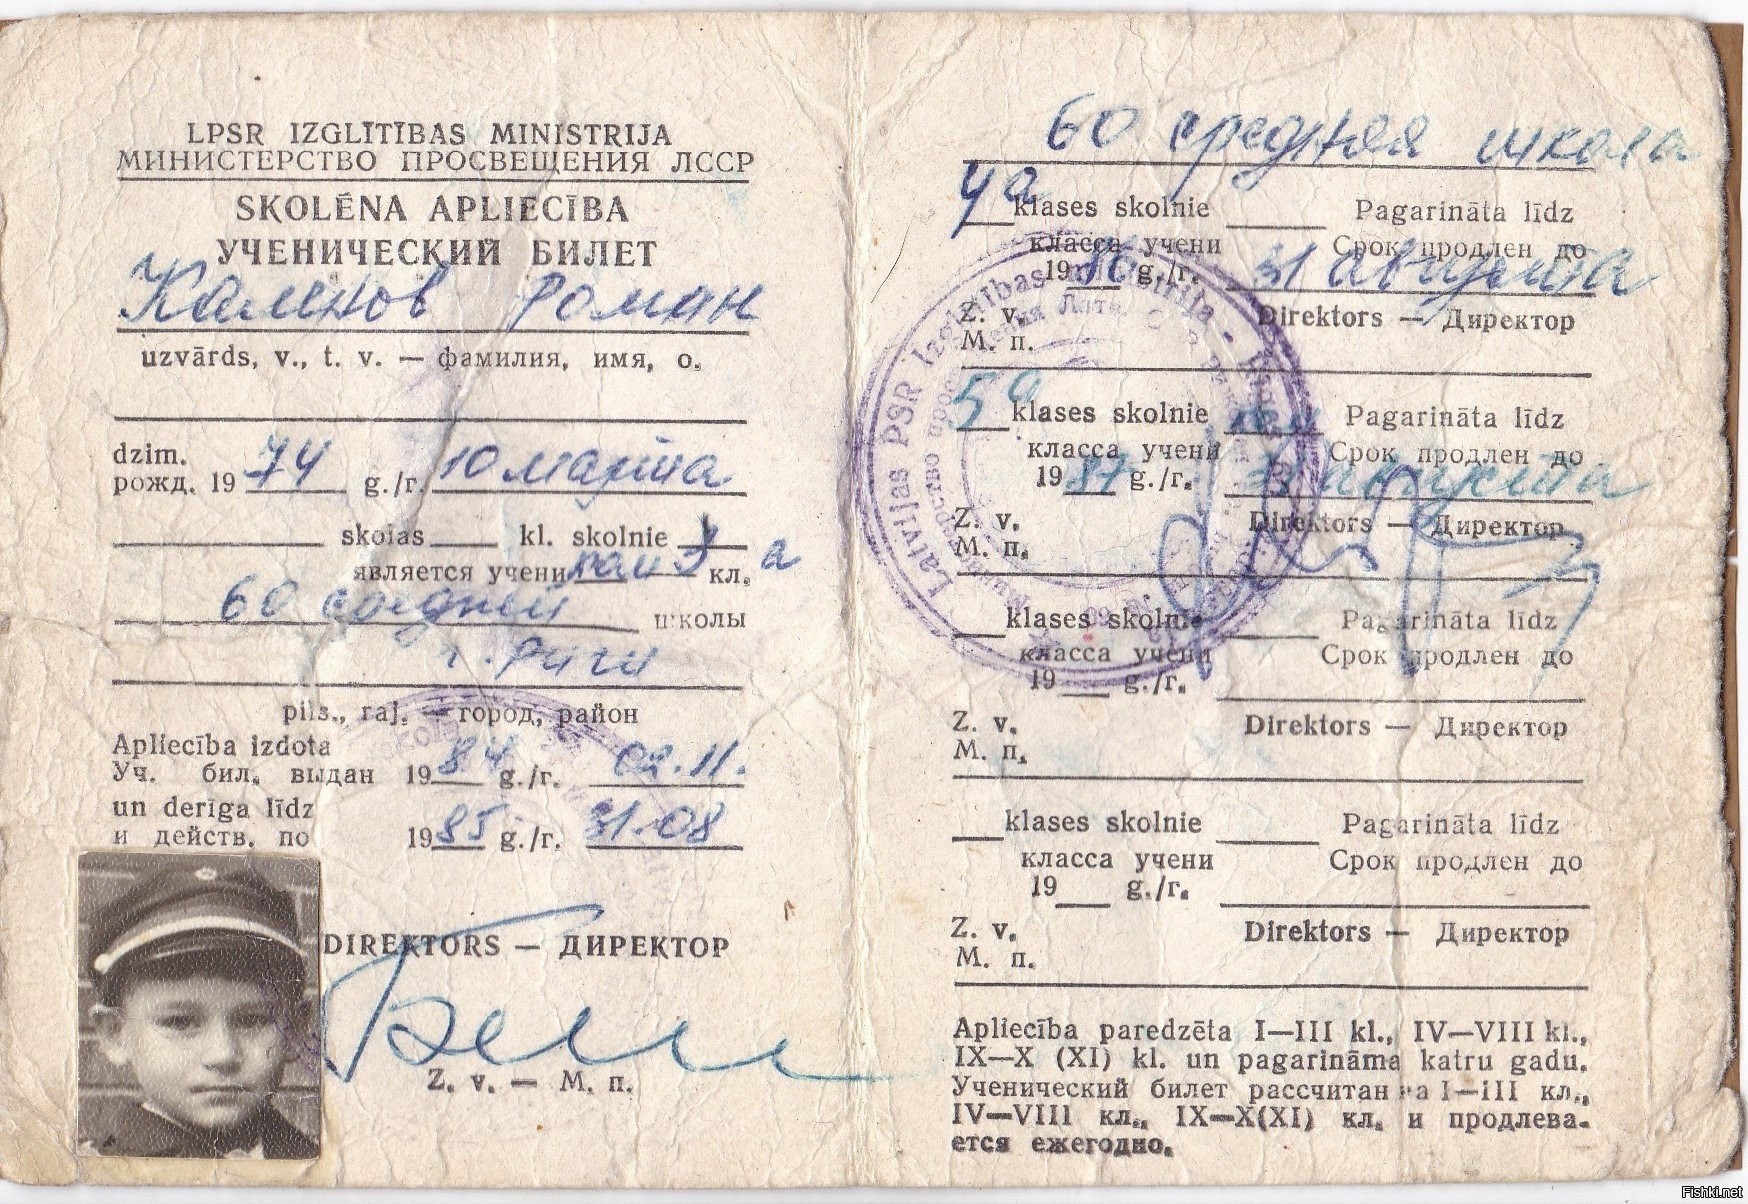 LPSR IZGLĪTĪBAS MINISTRIJA
МИНИСТЕРСТВО ПРОСВЕЩЕНИЯ ЛССР
SKOLĒNA APLIECĪBA
УЧЕНИЧЕСКИЙ БИЛЕТ
Каменов Роман
uzvārds, v., t. v. — фамилия, имя, о.
dzim.
рожд. 1974 g./г. 10 марта
skolas kl. skolnie
является учени 3 кл. а
60 средней школы
г. Риги
pils., raj. — город, район
Apliecība izdota
Уч. бил. выдан 1984 g./г. 02.11.
un derīga līdz
и действ. по 1985 g./г. 31.08
DIREKTORS — ДИРЕКТОР
Z. v. — М. п.
60 средняя школа
4а klases skolnie Pagarināta līdz
класса учени Срок продлен до
1986 g./г. 31 августа
Z. v. Direktors — Директор
М. п.
5а klases skolnie Pagarināta līdz
класса учени Срок продлен до
1987 g./г. 31 августа
Z. v. Direktors — Директор
М. п.
klases skolnie Pagarināta līdz
класса учени Срок продлен до
19 g./г.
Z. v. Direktors — Директор
М. п.
klases skolnie Pagarināta līdz
класса учени Срок продлен до
19 g./г.
Z. v. Direktors — Директор
М. п.
Apliecība paredzēta I—III kl., IV—VIII kl.,
IX—X (XI) kl. un pagarināma katru gadu.
Ученический билет рассчитан на I—III кл.,
IV—VIII кл., IX—X(XI) кл. и продлева-
ется ежегодно.
Latvijas PSR Izglītības ministrija
Fishki.net